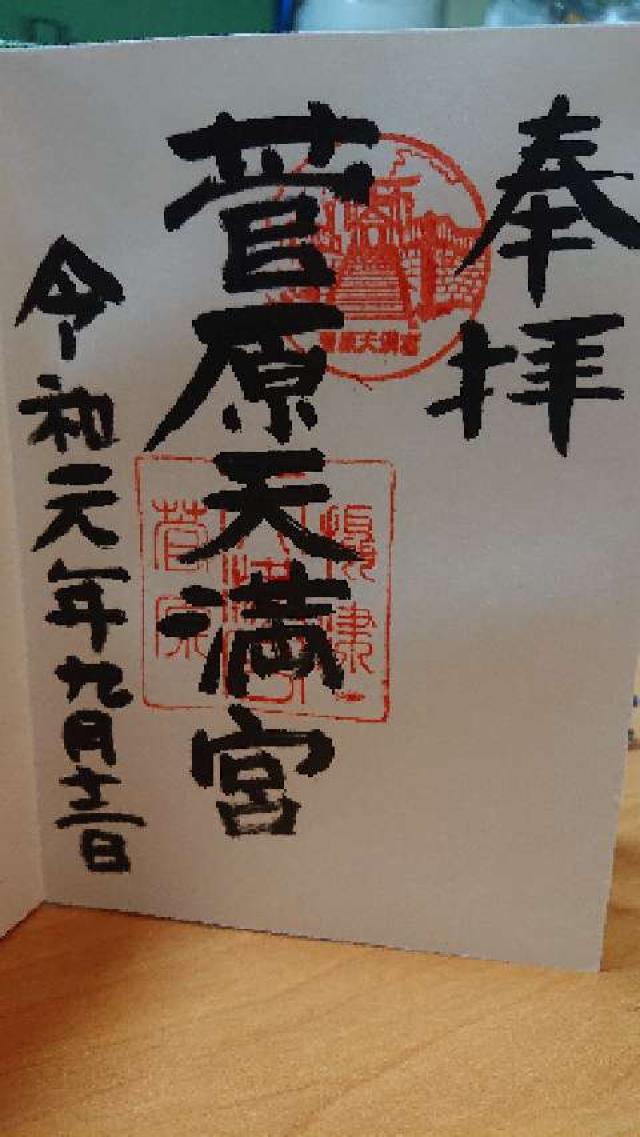 奉拝
菅原天満宮
菅原天満宮
令和元年九月十二日